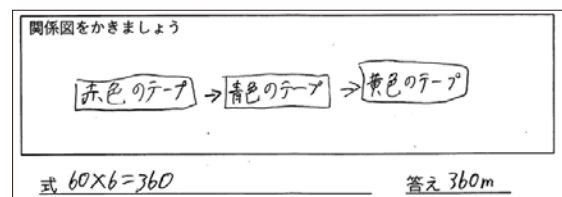 関係図をかきましょう
赤色のテープ→青色のテープ→黄色のテープ
式 60×6=360 答え 360m